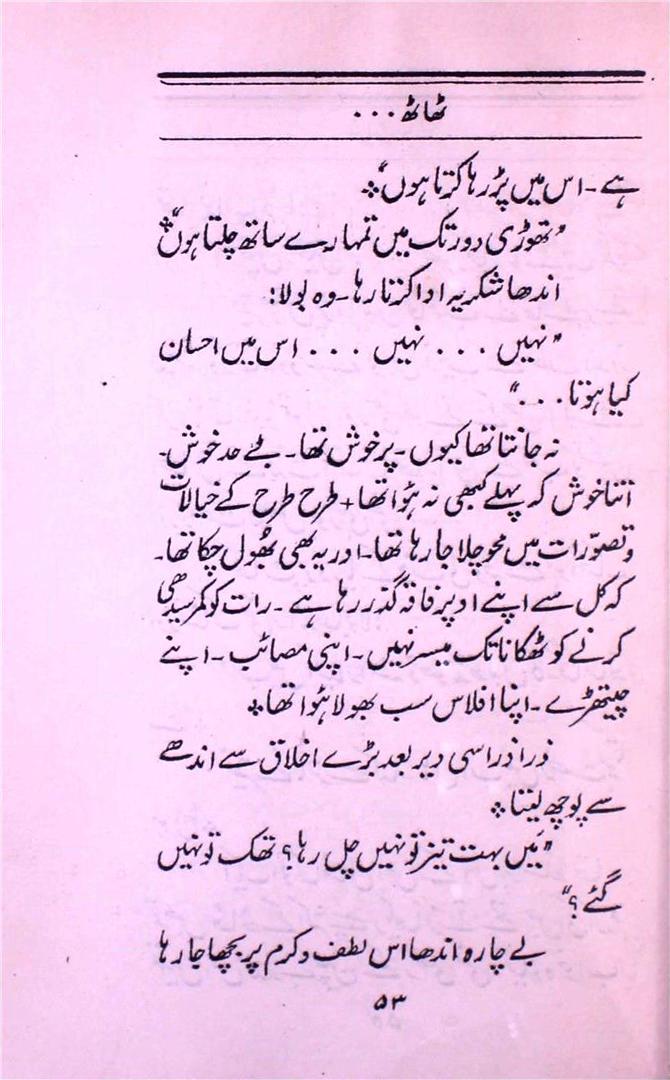 ٹھاٹھ ...
ہے۔ اس میں پڑ رہا کرتا ہوں"٭
"تھوڑی دور تک میں تمہارے ساتھ چلتا ہوں"٭
اندھا شکریہ ادا کرتا رہا۔ وہ بولا:
"نہیں ... نہیں ... اس میں احسان
کیا ہوتا ..."
نہ جانتا تھا کیوں۔ پر خوش تھا۔ بے حد خوش۔
اتنا خوش کہ پہلے کبھی نہ ہؤا تھا+ طرح طرح کے خیالات
و تصوّرات میں محو چلا جا رہا تھا۔ اور یہ بھی بھُول چکا تھا۔
کہ کل سے اپنے اوپر فاقہ گذر رہا ہے۔ رات کو کمر سیدھی
کرنے کو ٹھکانا تک میسر نہیں۔ اپنی مصائب۔ اپنے
چیتھڑے۔ اپنا افلاس سب بھولا ہؤا تھا٭
ذرا ذرا سی دیر بعد بڑے اخلاق سے اندھے
سے پوچھ لیتا٭
"مَیں بہت تیز تو نہیں چل رہا؟ تھک تو نہیں
گئے؟"
بے چارہ اندھا اس لطف و کرم پر بچھا جا رہا
۵۳